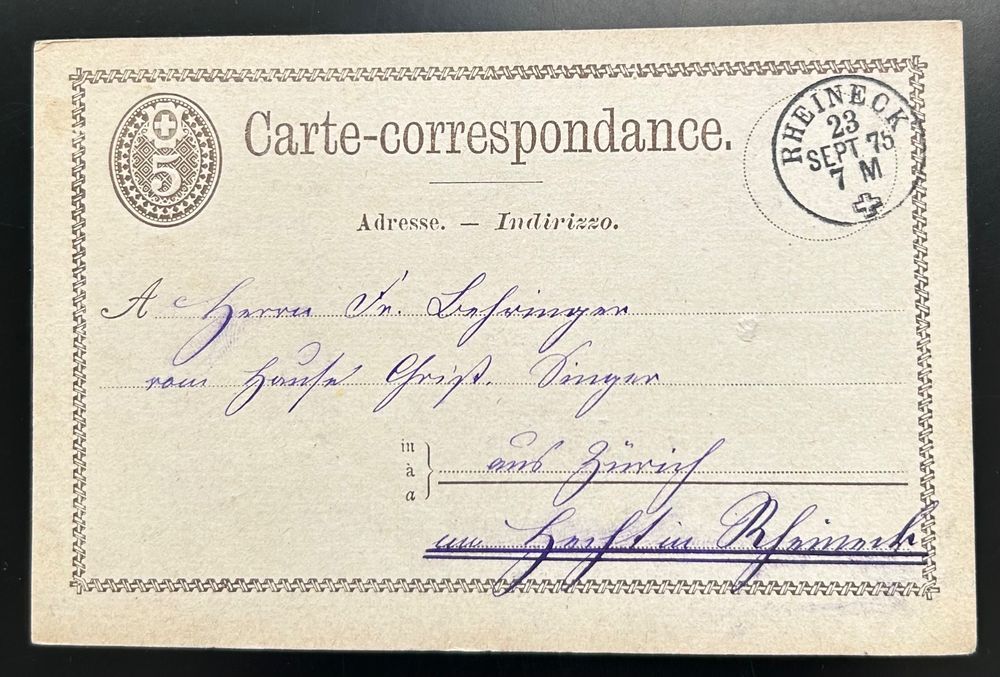 5
Carte-correspondance.
RHEINECK
23
SEPT 75
7 M
Adresse. — Indirizzo.
A Herrn Fr. Behringer
vom Hause Christ. Singer
in
à
a
aus Zürich
zum Hecht in Rheineck